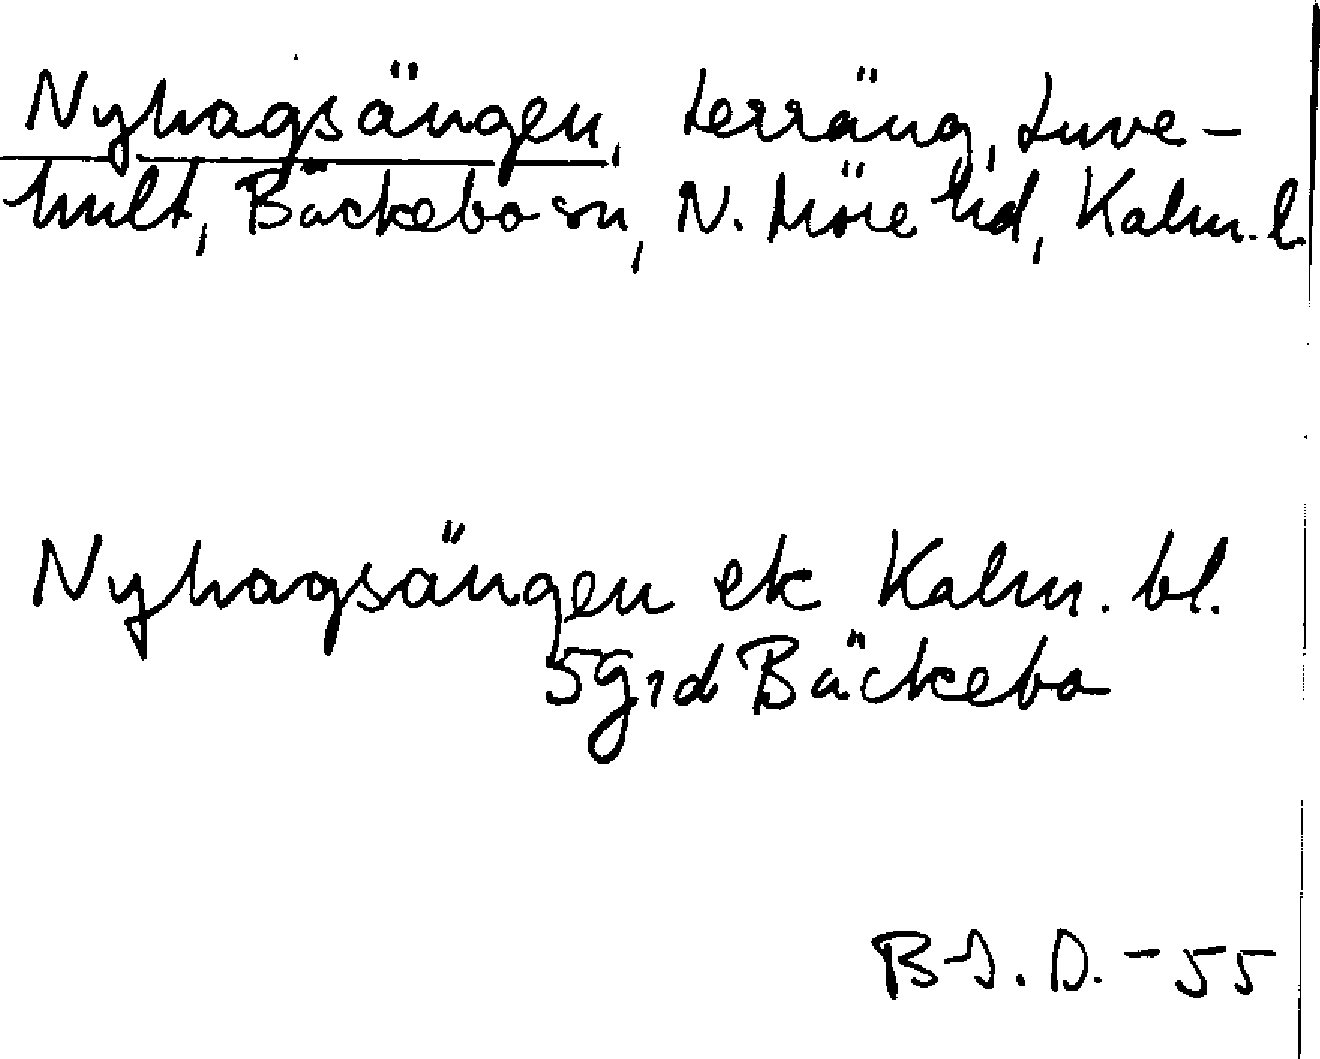 Nyhagsängen, terräng, Luve-
hult, Bäckebo sn, N. Möre hd, Kalm. l.
Nyhagsängen ek Kalm. bl.
5 grd Bäckebo
B-J. D. - 55